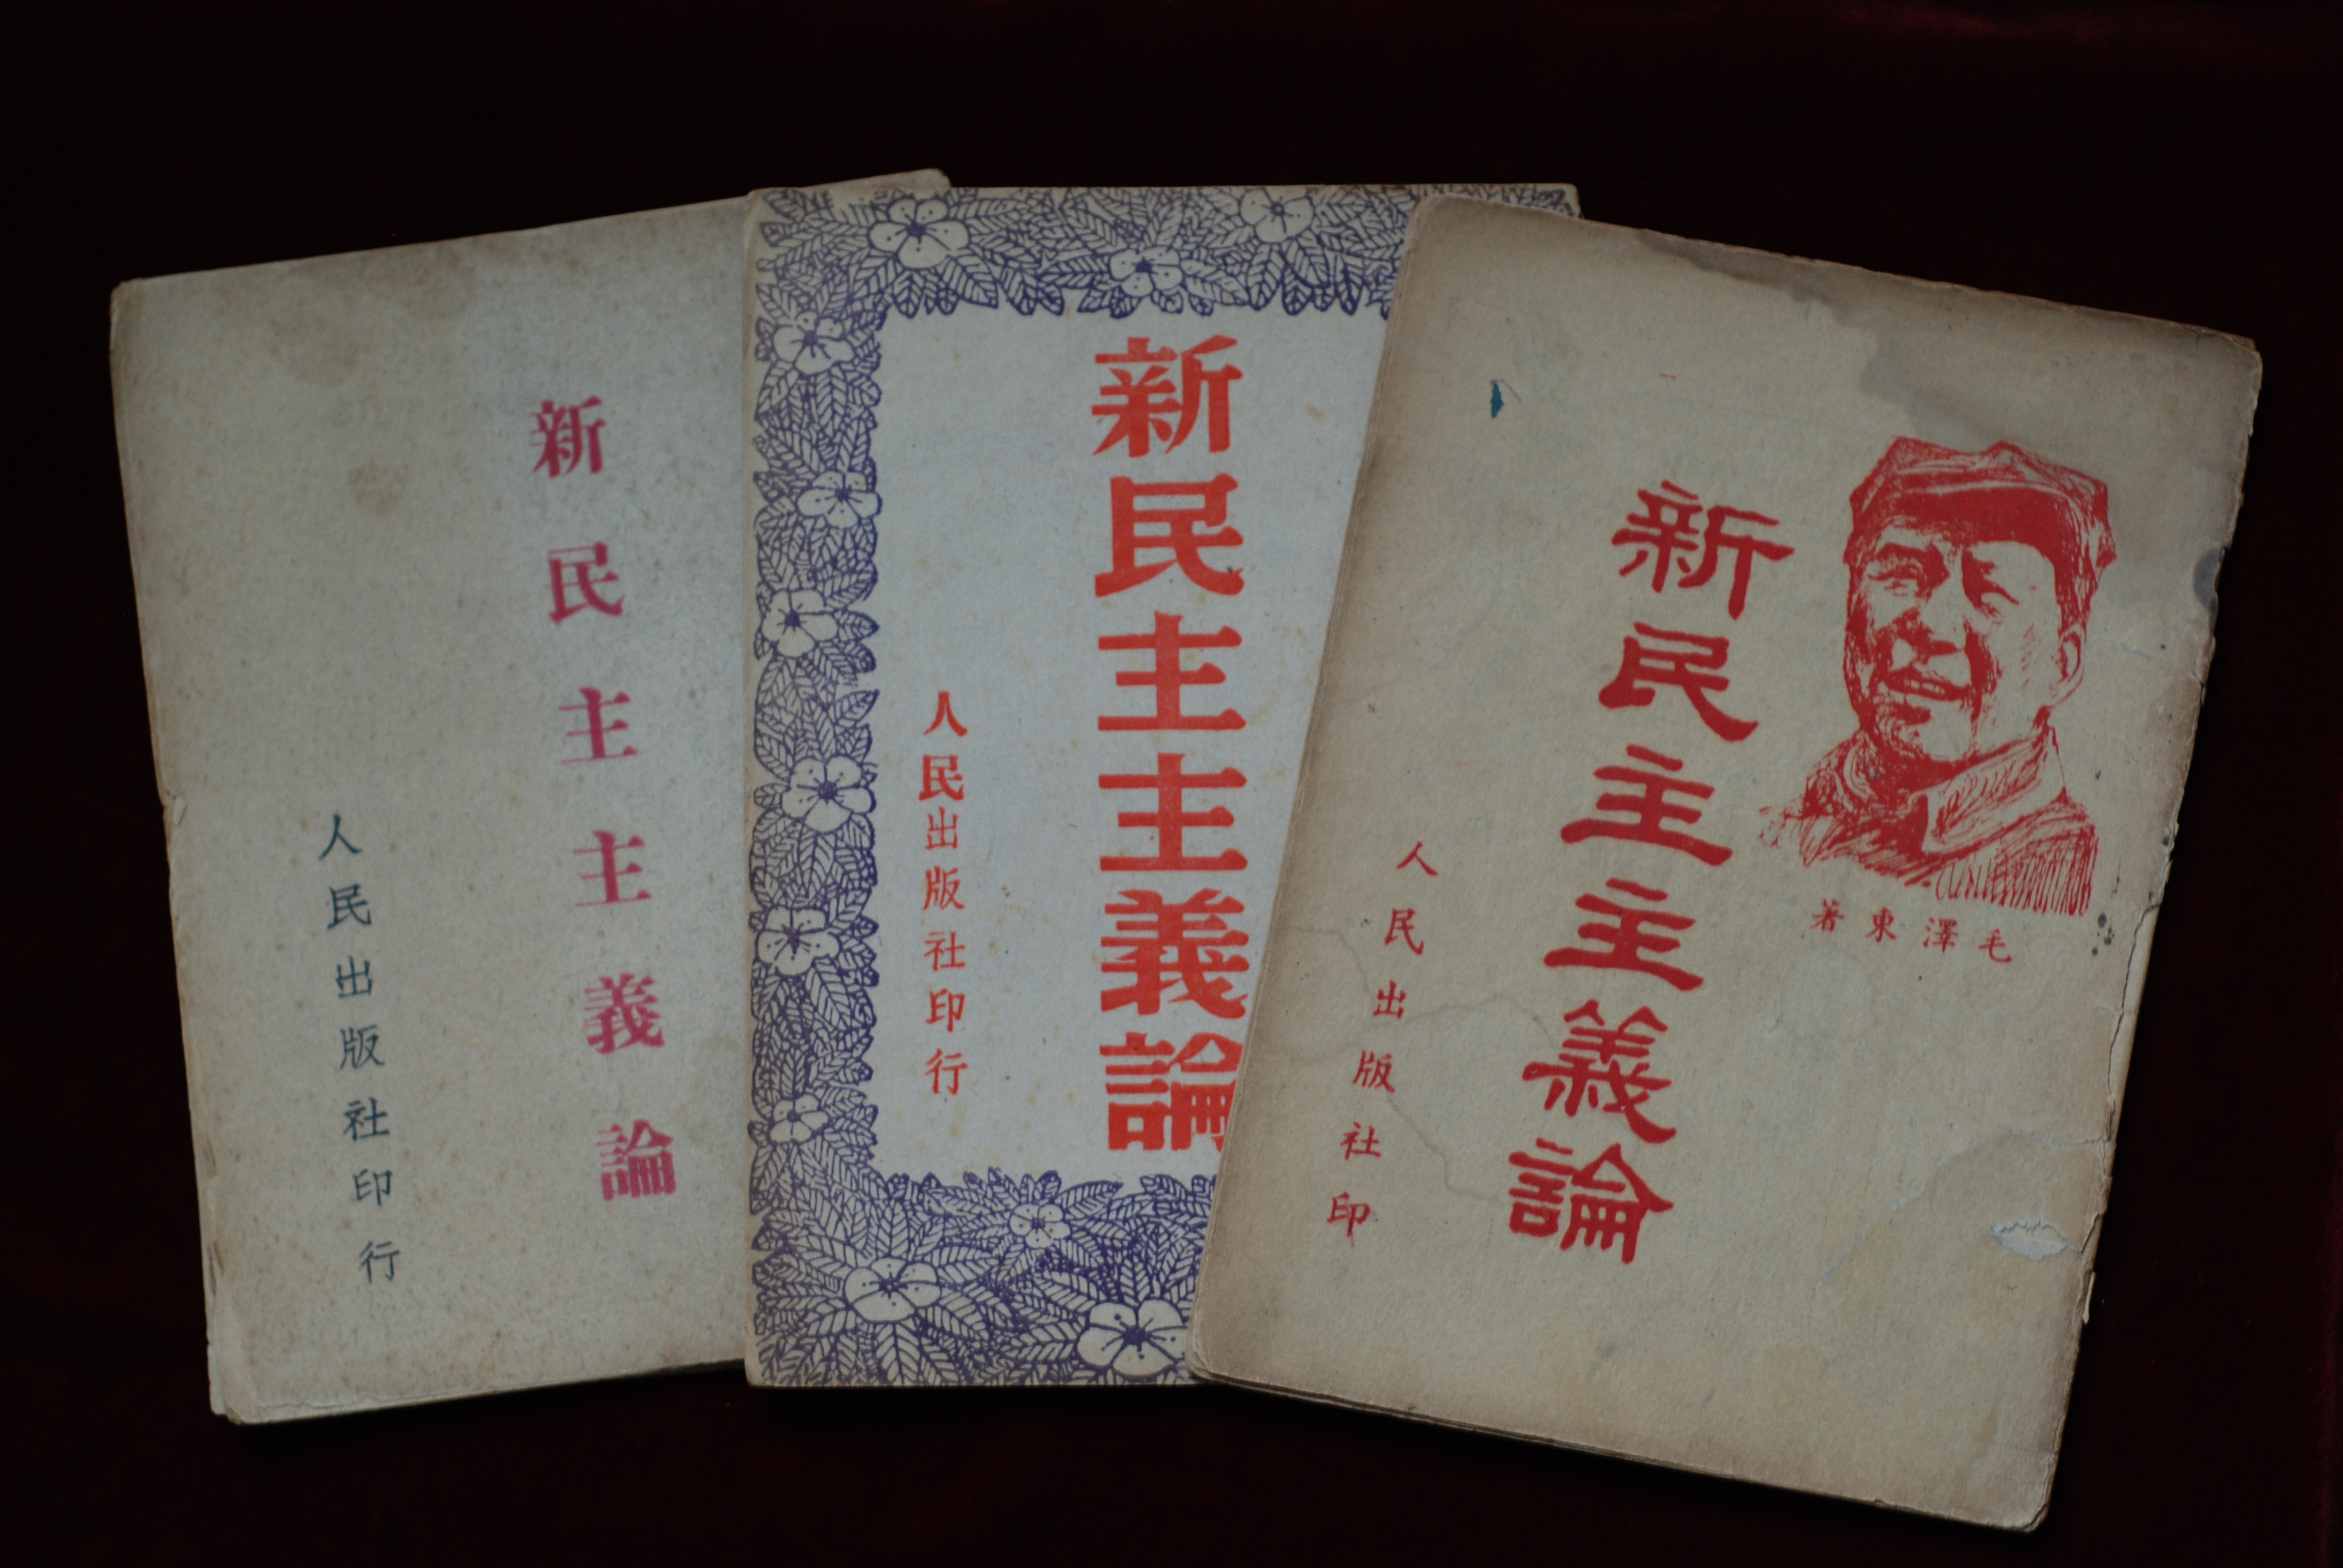 新民主主義論
人民出版社印行
新民主主義論
人民出版社印行
毛澤東著
新民主主義論
人民出版社印